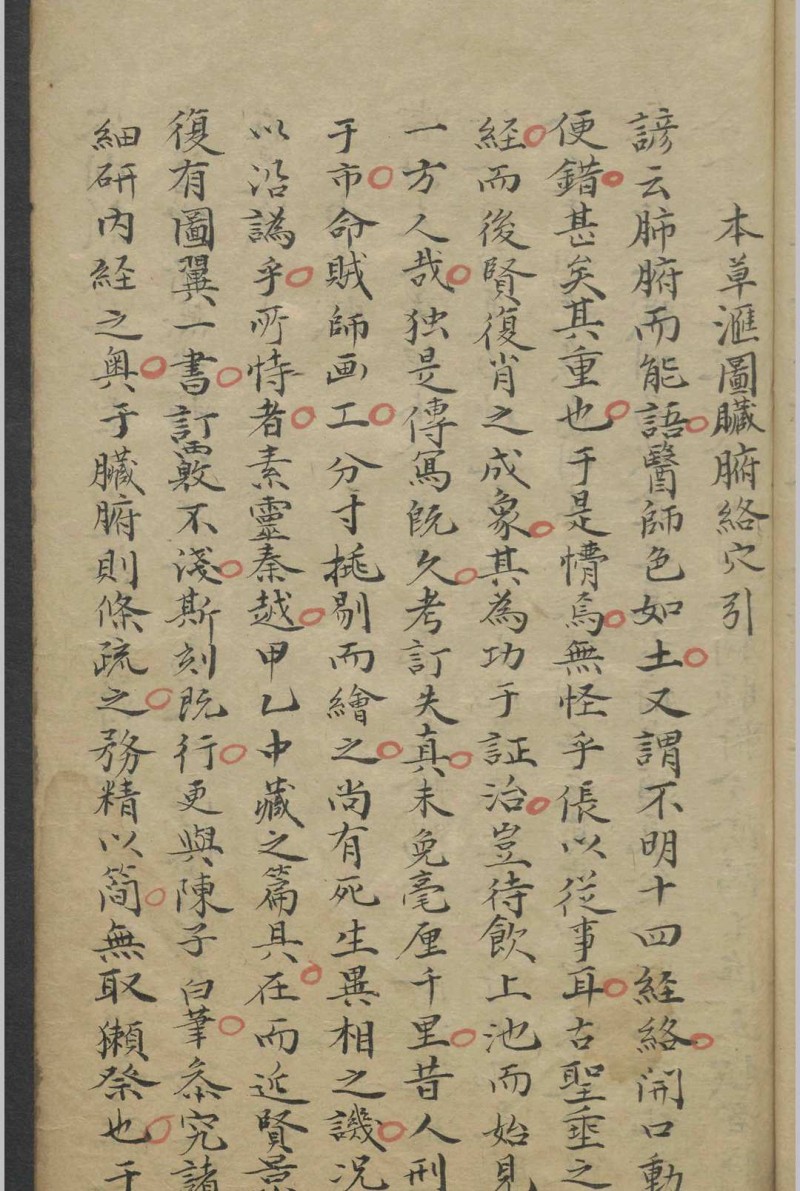 本草滙圖臟腑絡穴引
諺云肺腑而能語醫師色如土又謂不明十四経絡開口動
便錯甚矣其重也于是懵焉無怪乎倀以從事耳古聖垂之
経而後賢復肖之成象其為功于証治豈待飲上池而始見
一方人哉独是傳寫既久考訂失真未免毫厘千里昔人刑
于市命賊師画工分寸挑剔而繪之尚有死生異相之譏况
以沿譌乎所恃者素靈秦越甲乙中藏之篇具在而近賢景
復有圖翼一書訂覈不淺斯刻既行更與陳子白筆叅究諸
細研内経之奥于臟腑則條疏之務精以简無取獺祭也于